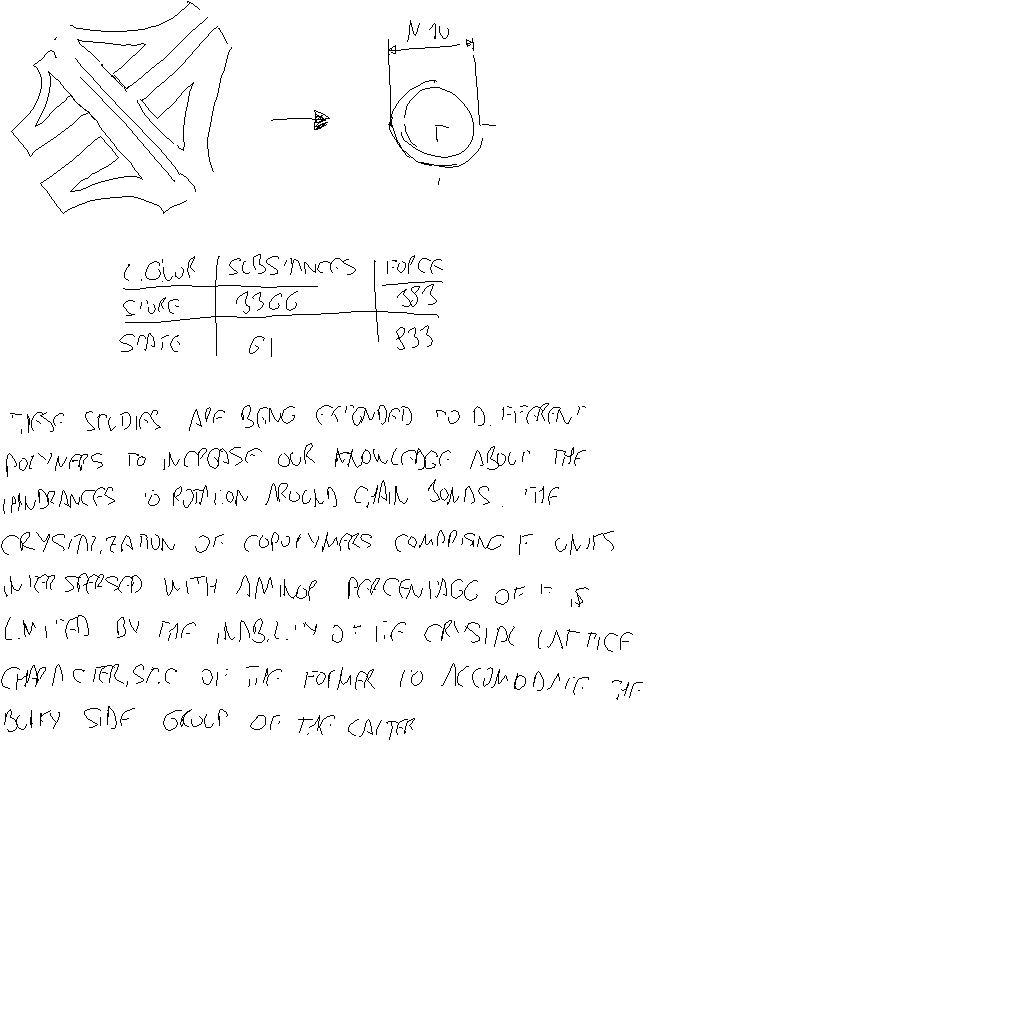 M 10
COLOUR SUBSTANCES FORCE
STORE 3366 383
STATE 61 833
THESE STUDIES ARE BEING EXTENDED TO DIFFERENT
POLYMERS TO INCREASE OUR KNOWLEDGE ABOUT THE
HINDRANCES TO ROTATION AROUND CHAIN BONDS. THE
CRYSTALLIZATION OF COPOLYMERS COMPRISING F UNITS
INTERSPERSED WITH A MINOR PERCENTAGE OF IT IS
LIMITED BY THE INABILITY OF THE CRYSTAL LATTICE
CHARACTERISTIC OF THE FORMER TO ACCOMODATE THE
BULKY SIDE GROUP OF THE LATTER